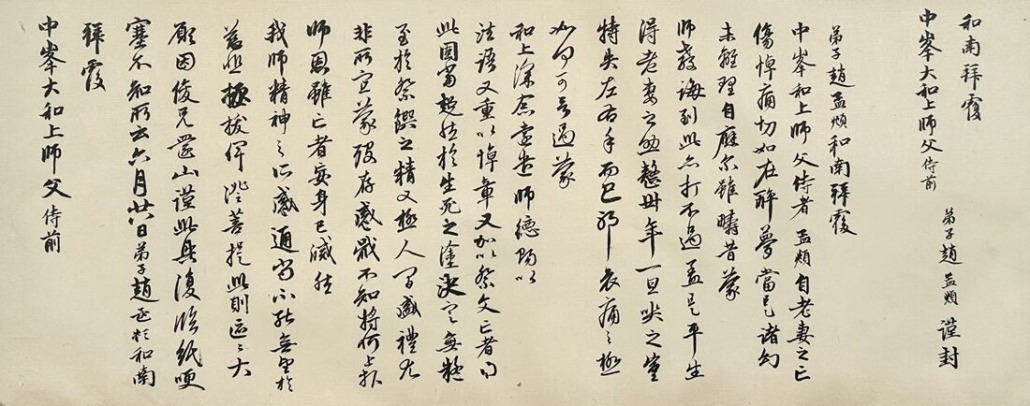 和南拜覆
中峯大和上師父侍前
弟子趙孟頫謹封
弟子趙孟頫和南拜覆
中峯和上師父侍者孟頫自老妻之亡
傷悼痛切如在醉夢當是諸幻
未離理自應爾雖疇昔蒙
師教誨到此亦打不過蓋是平生
得老妻之助整卅年一旦喪之豈
特失左右手而已耶哀痛之極
如何可言過蒙
和上深念遠遣師德賜以
法語又重以悼章又加以祭文亡者得
此固當超然於生死之塗決定無疑
至於祭饌之精又極人間盛禮尤
非所宜蒙歿存感戢不知將何上報
師恩雖亡者妄身已滅然
我師精神之所感通尚不能無望於
慈悲拯拔俾證菩提此則區區大
願因俊兄還山謹此具復臨紙哽
塞不知所云六月廿八日弟子趙孟頫和南
拜覆
中峯大和上師父侍前